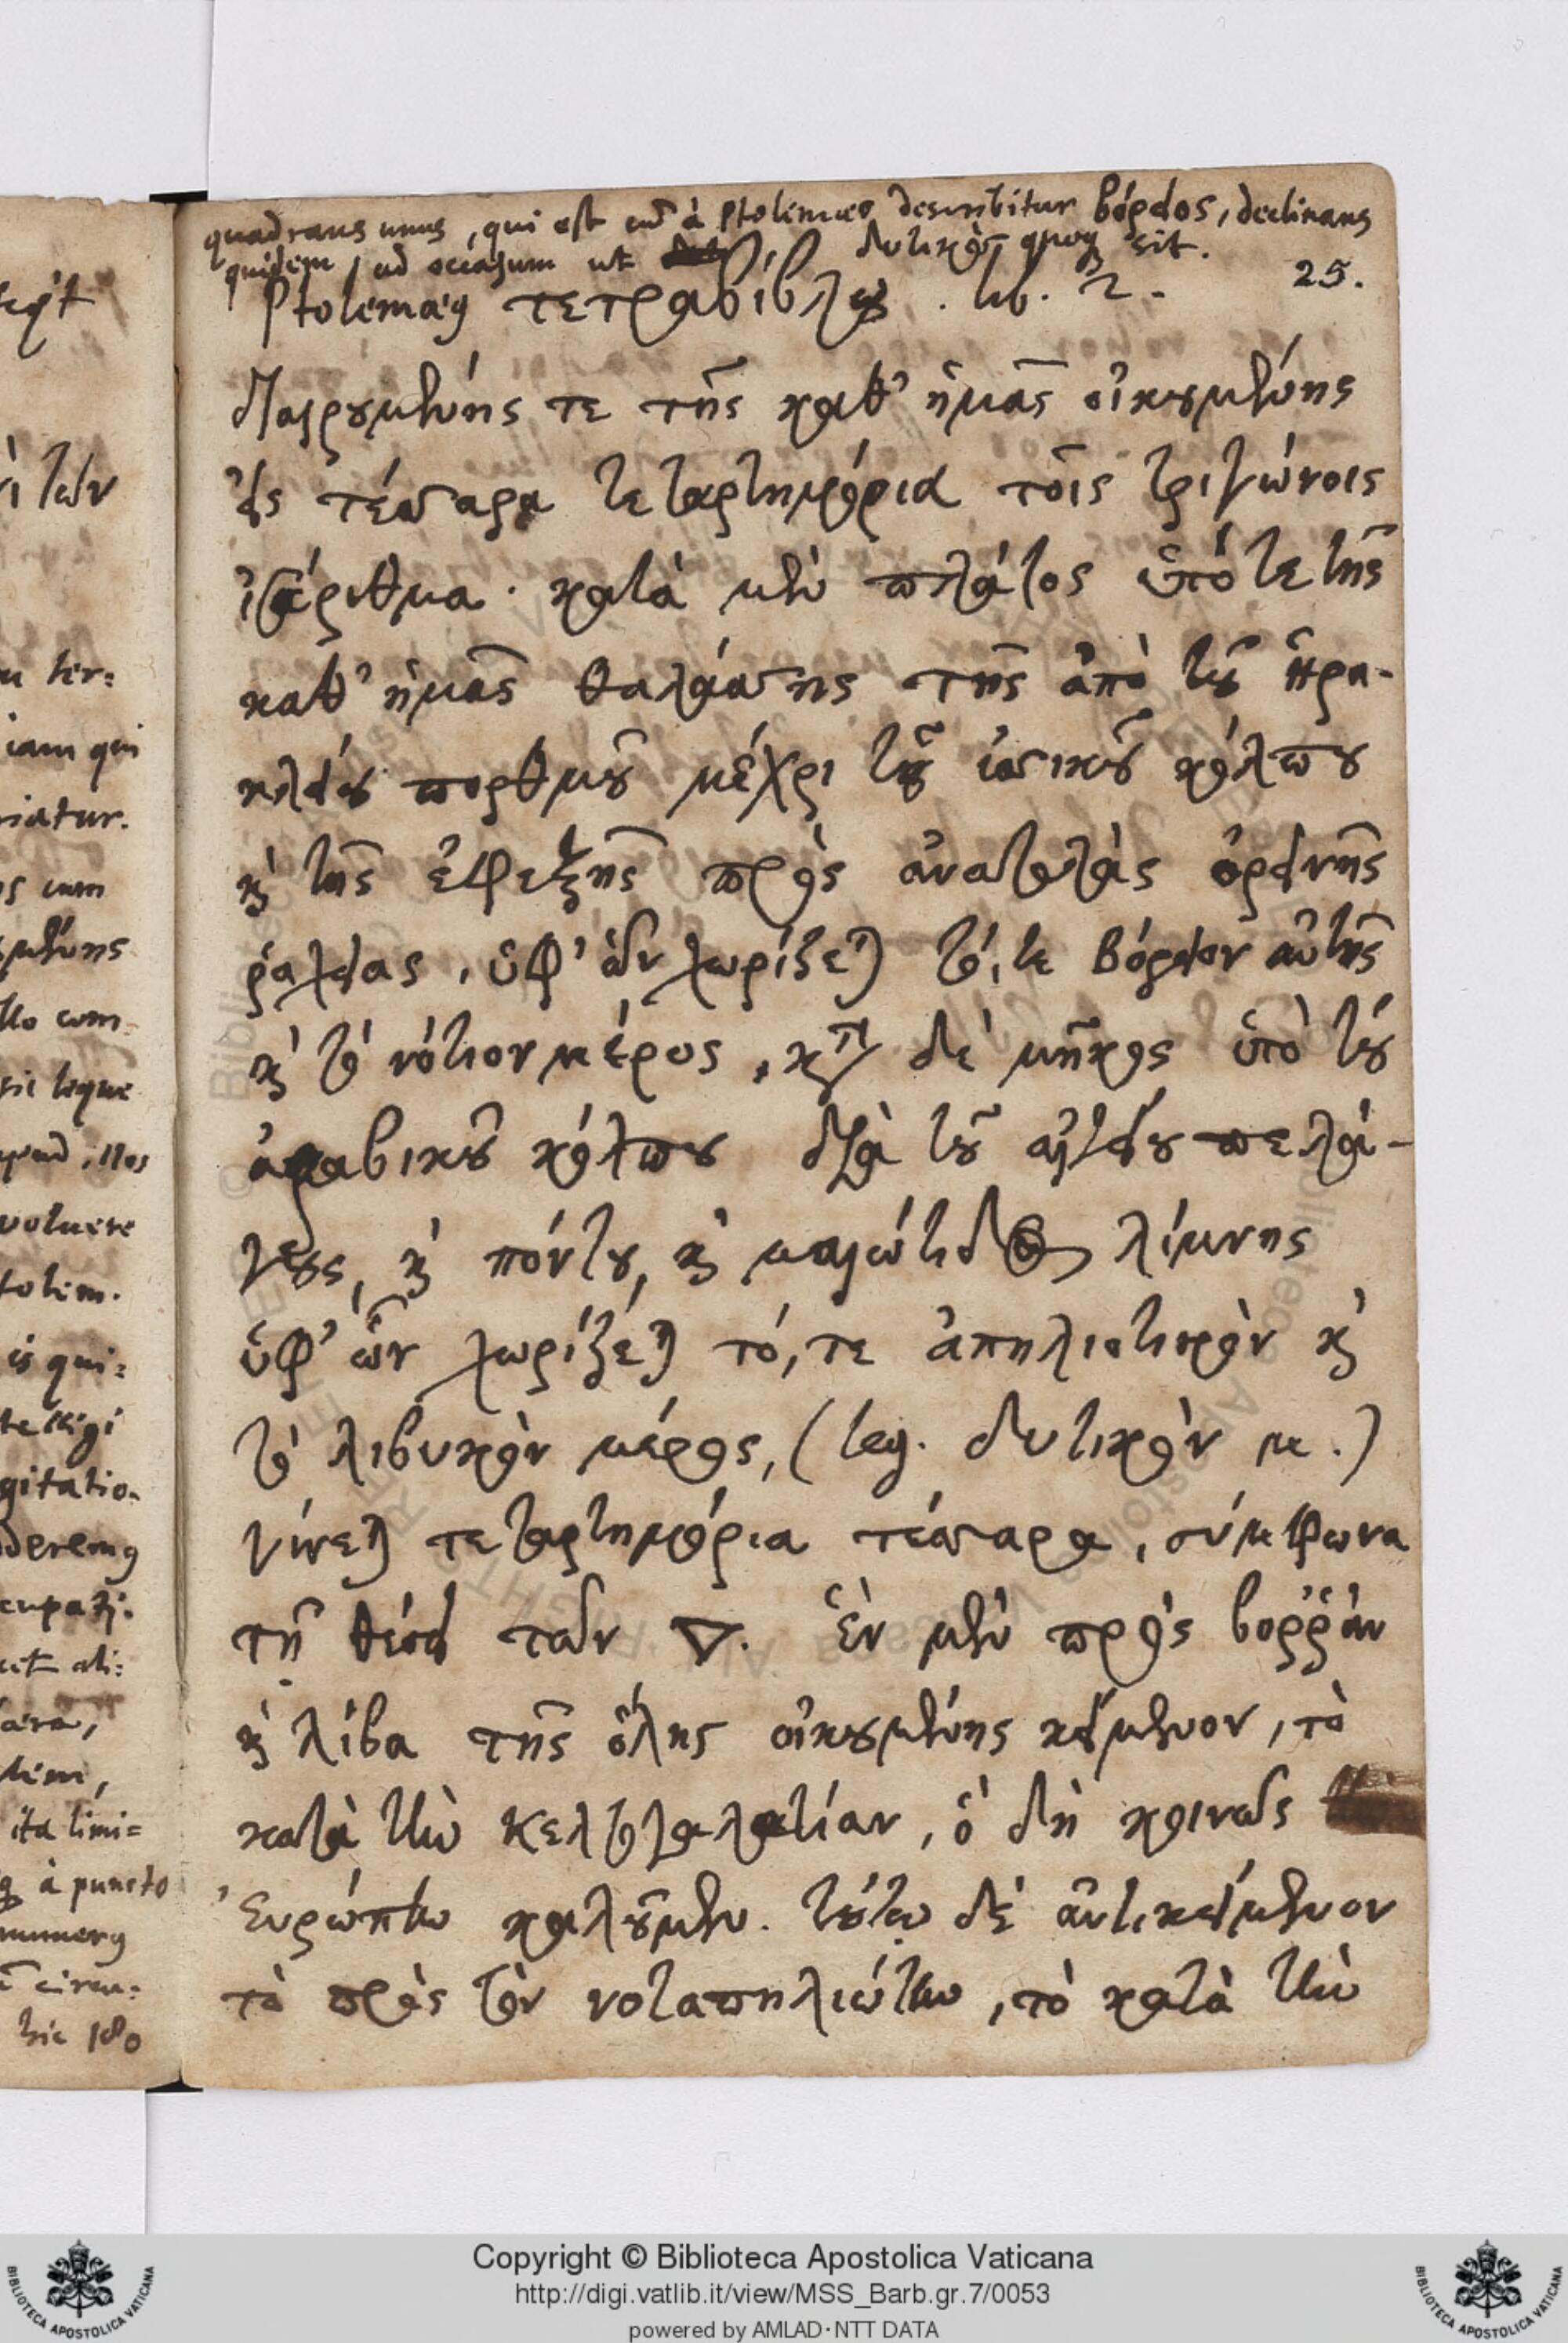 quadrans unus, qui est cũ à Ptolemaeo describitur βόρειος, declinans
quidem, ad occasum ut δυτικὸς quoq sit.
25.
Ptolemaeus τετραβίβλῳ. lib. 2.
Διαιρουμένης τε τῆς καθ' ἡμᾶς οἰκουμένης
εἰς τέσσαρα τεταρτημόρια τοῖς τριγώνοις
ἰσάριθμα· κατὰ μὲν πλάτος ὑπό τε τῆς
καθ' ἡμᾶς θαλάσσης τῆς ἀπὸ τοῦ ἡρα-
κλείου πορθμοῦ μέχρι τοῦ ἰσσικοῦ κόλπου
καὶ τῆς ἐφεξῆς πρὸς ἀνατολὰς ὀρεινῆς
ῥαχείας, ὑφ' ὧν χωρίζεται τό,τε βόρειον αὐτῆς
καὶ τὸ νότιον μέρος, κατὰ δὲ μῆκος ὑπὸ τοῦ
ἀραβικοῦ κόλπου διὰ τοῦ αἰγείου πελά-
γους, καὶ πόντου, καὶ μαιώτιδος λίμνης
ὑφ' ὧν χωρίζεται τό,τε ἀπηλιωτικὸν καὶ
τὸ λιβυκὸν μέρος, (leg. δυτικὸν μ.)
γίνεται τεταρτημόρια τέσσαρα, σύμφωνα
τῇ θέσει τῶν ▽. ἓν μὲν πρὸς βοῤῥᾶν
καὶ λίβα τῆς ὅλης οἰκουμένης κείμενον, τὸ
κατὰ τὴν Κελτογαλατίαν, ὃ δὴ κοινῶς
Εὐρώπην καλοῦμεν. τούτῳ δὲ ἀντικείμενον
τὸ πρὸς τὸν νοταπηλιώτην, τὸ κατὰ τὴν
Copyright © Biblioteca Apostolica Vaticana
http://digi.vatlib.it/view/MSS_Barb.gr.7/0053
powered by AMLAD·NTT DATA